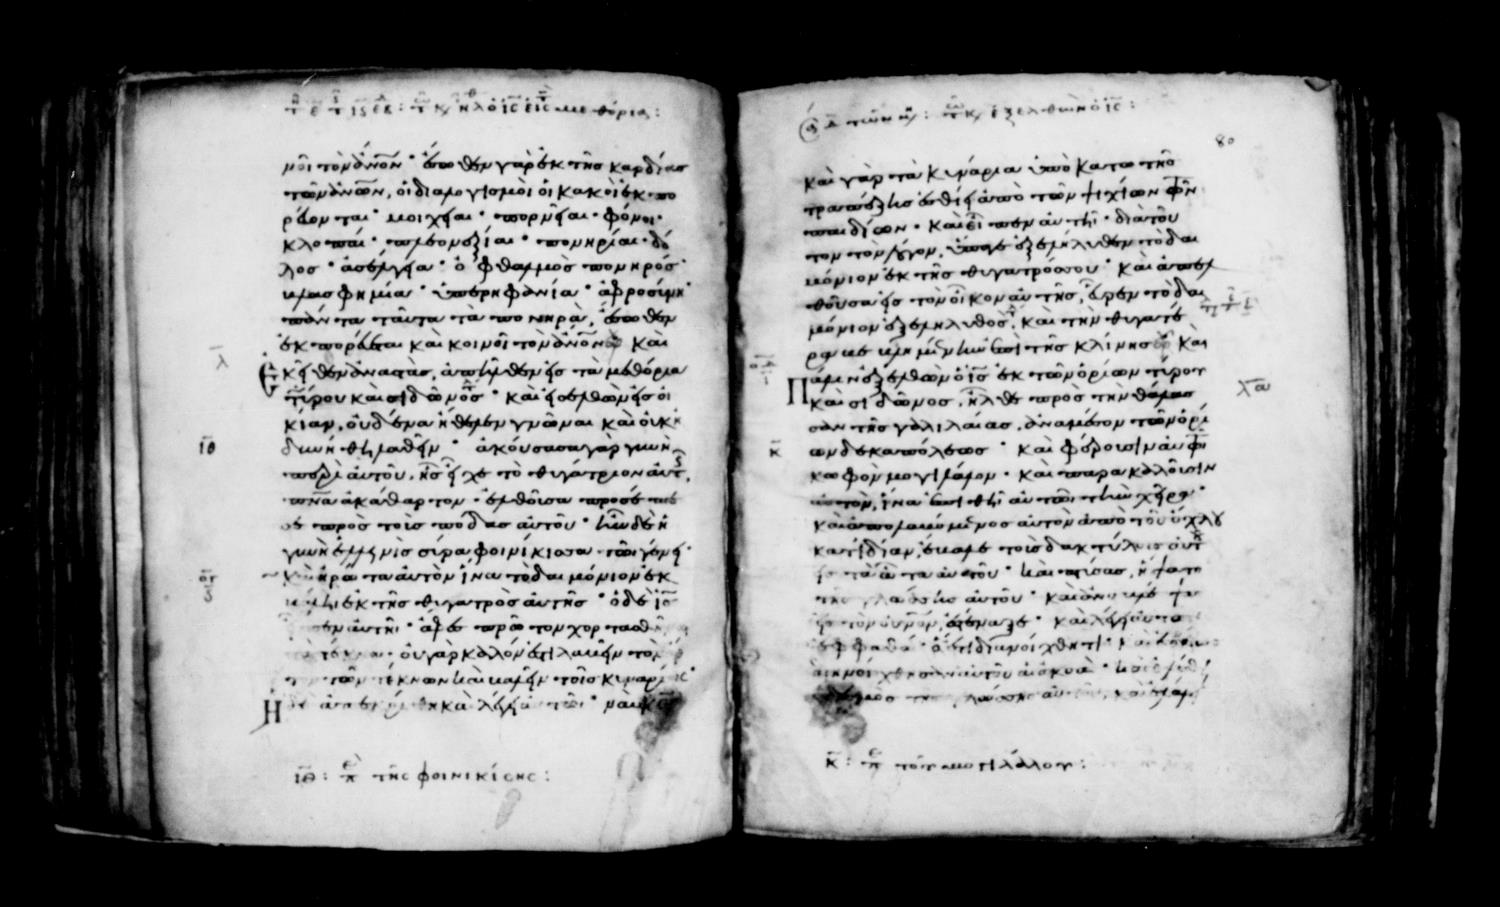 νοῖ τὸν ἄνον· ἔσωθεν γὰρ ἐκ τῆς καρδίας
τῶν ἀνων, οἱ διαλογισμοὶ οἱ κακοὶ ἐκπο
ρεύονται· μοιχεῖαι· πορνεῖαι· φόνοι·
κλοπαί· πλεονεξίαι· πονηρίαι· δό
λος· ἀσέλγεια· ὀφθαλμὸς πονηρός·
βλασφημία· ὑπερηφανία· ἀφροσύνη·
πάντα ταῦτα τὰ πονηρὰ, ἔσωθεν
ἐκπορεύεται καὶ κοινοῖ τὸν ἄνον καὶ
ἐκεῖθεν ἀναστὰς, ἀπῆλθεν εἰς τὰ μεθόρια
τύρου καὶ σιδῶνος· καὶ εἰσελθὼν εἰς οἰ
κίαν, οὐδένα ἤθελεν γνῶναι καὶ οὐκ ἠ
δυνήθη λαθεῖν· ἀκούσασα γὰρ γυνὴ
περὶ αὐτοῦ, ἧς εἶχε τὸ θυγάτριον αὐτῆς,
πνα ἀκάθαρτον· ἐλθοῦσα προσέπε
σε πρὸς τοὺς πόδας αὐτοῦ· ἦν δὲ ἡ
γυνὴ ἑλληνὶς σύρα φοινίκισσα τῶ γένει·
καὶ ἠρώτα αὐτὸν ἵνα τὸ δαιμόνιον ἐκ
βάλη ἐκ τῆς θυγατρὸς αὐτῆς· ὁ δὲ ις
εἶπεν αὐτῆ· ἄφες πρῶτον χορτασθῆναι
τὰ τέκνα· οὐ γὰρ καλόν ἐστι λαβεῖν τὸν
τῶν τέκνων καὶ βαλεῖν τοῖς κυναρίοις·
ἡ δὲ ἀπεκρίθη καὶ λέγει αὐτῶ· ναὶ κε
ιθ: π τῆς φοινικίσης:
80
καὶ γὰρ τὰ κυνάρια ὑποκάτω τῆς
τραπέζης ἐσθίει ἀπὸ τῶν ψιχίων τῶν
παιδίων· καὶ εἶπεν αὐτῆ· διὰ τοῦ
τον τὸν λόγον, ὕπαγε ἐξελήλυθεν τὸ δαι
μόνιον ἐκ τῆς θυγατρός σου· καὶ ἀπελ
θοῦσα εἰς τὸν οἶκον αὐτῆς, εὗρεν τὸ δαι
μόνιον ἐξεληλυθός, καὶ τὴν θυγατέ
ρα βεβλημένην ἐπὶ τῆς κλίνης καὶ
πάλιν ἐξελθὼν ὁ ις ἐκ τῶν ὁρίων τύρου
καὶ σιδῶνος, ἦλθε πρὸς τὴν θάλασ
σαν τῆς γαλιλαίας, ἀναμέσον τῶν ὁρί
ων δεκαπόλεως· καὶ φέρουσιν αὐτῶ
κωφὸν μογιλάλον· καὶ παρακαλοῦσιν
αὐτὸν, ἵνα ἐπιθῆ αὐτῶ τὴν χεῖρα·
καὶ ἀπολαβόμενος αὐτὸν ἀπὸ τοῦ ὄχλου
κατιδίαν, ἔβαλε τοὺς δακτύλους αὐτοῦ
εἰς τὰ ὦτα αὐτοῦ· καὶ πτύσας, ἥψατο
τῆς γλώσσης αὐτοῦ· καὶ ἀναβλέψας
εἰς τὸν οὐνον, ἐστέναξε· καὶ λέγει αὐτῶ
ἐφφαθά· ὅ ἐστι διανοίχθητι· καὶ
διηνοίχθησαν αὐτοῦ αἱ ἀκοαὶ· καὶ ἐλύθη
δεσμὸς τῆς γλώσσης αὐτοῦ, καὶ ἐλάλει
κ: π τοῦ μογιλάλου: